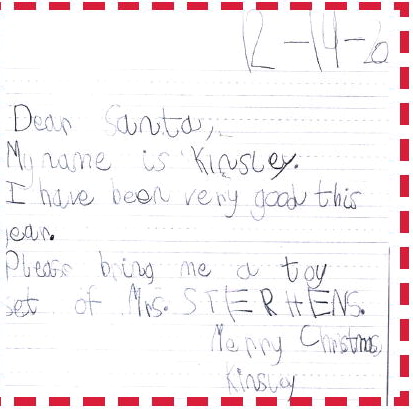 12-14-6
Dear Santa,
My name is Kinsley.
I have been very good this
year.
Please bring me a toy
set of Mrs. STEPHENS.
Merry Christmas,
Kinsley